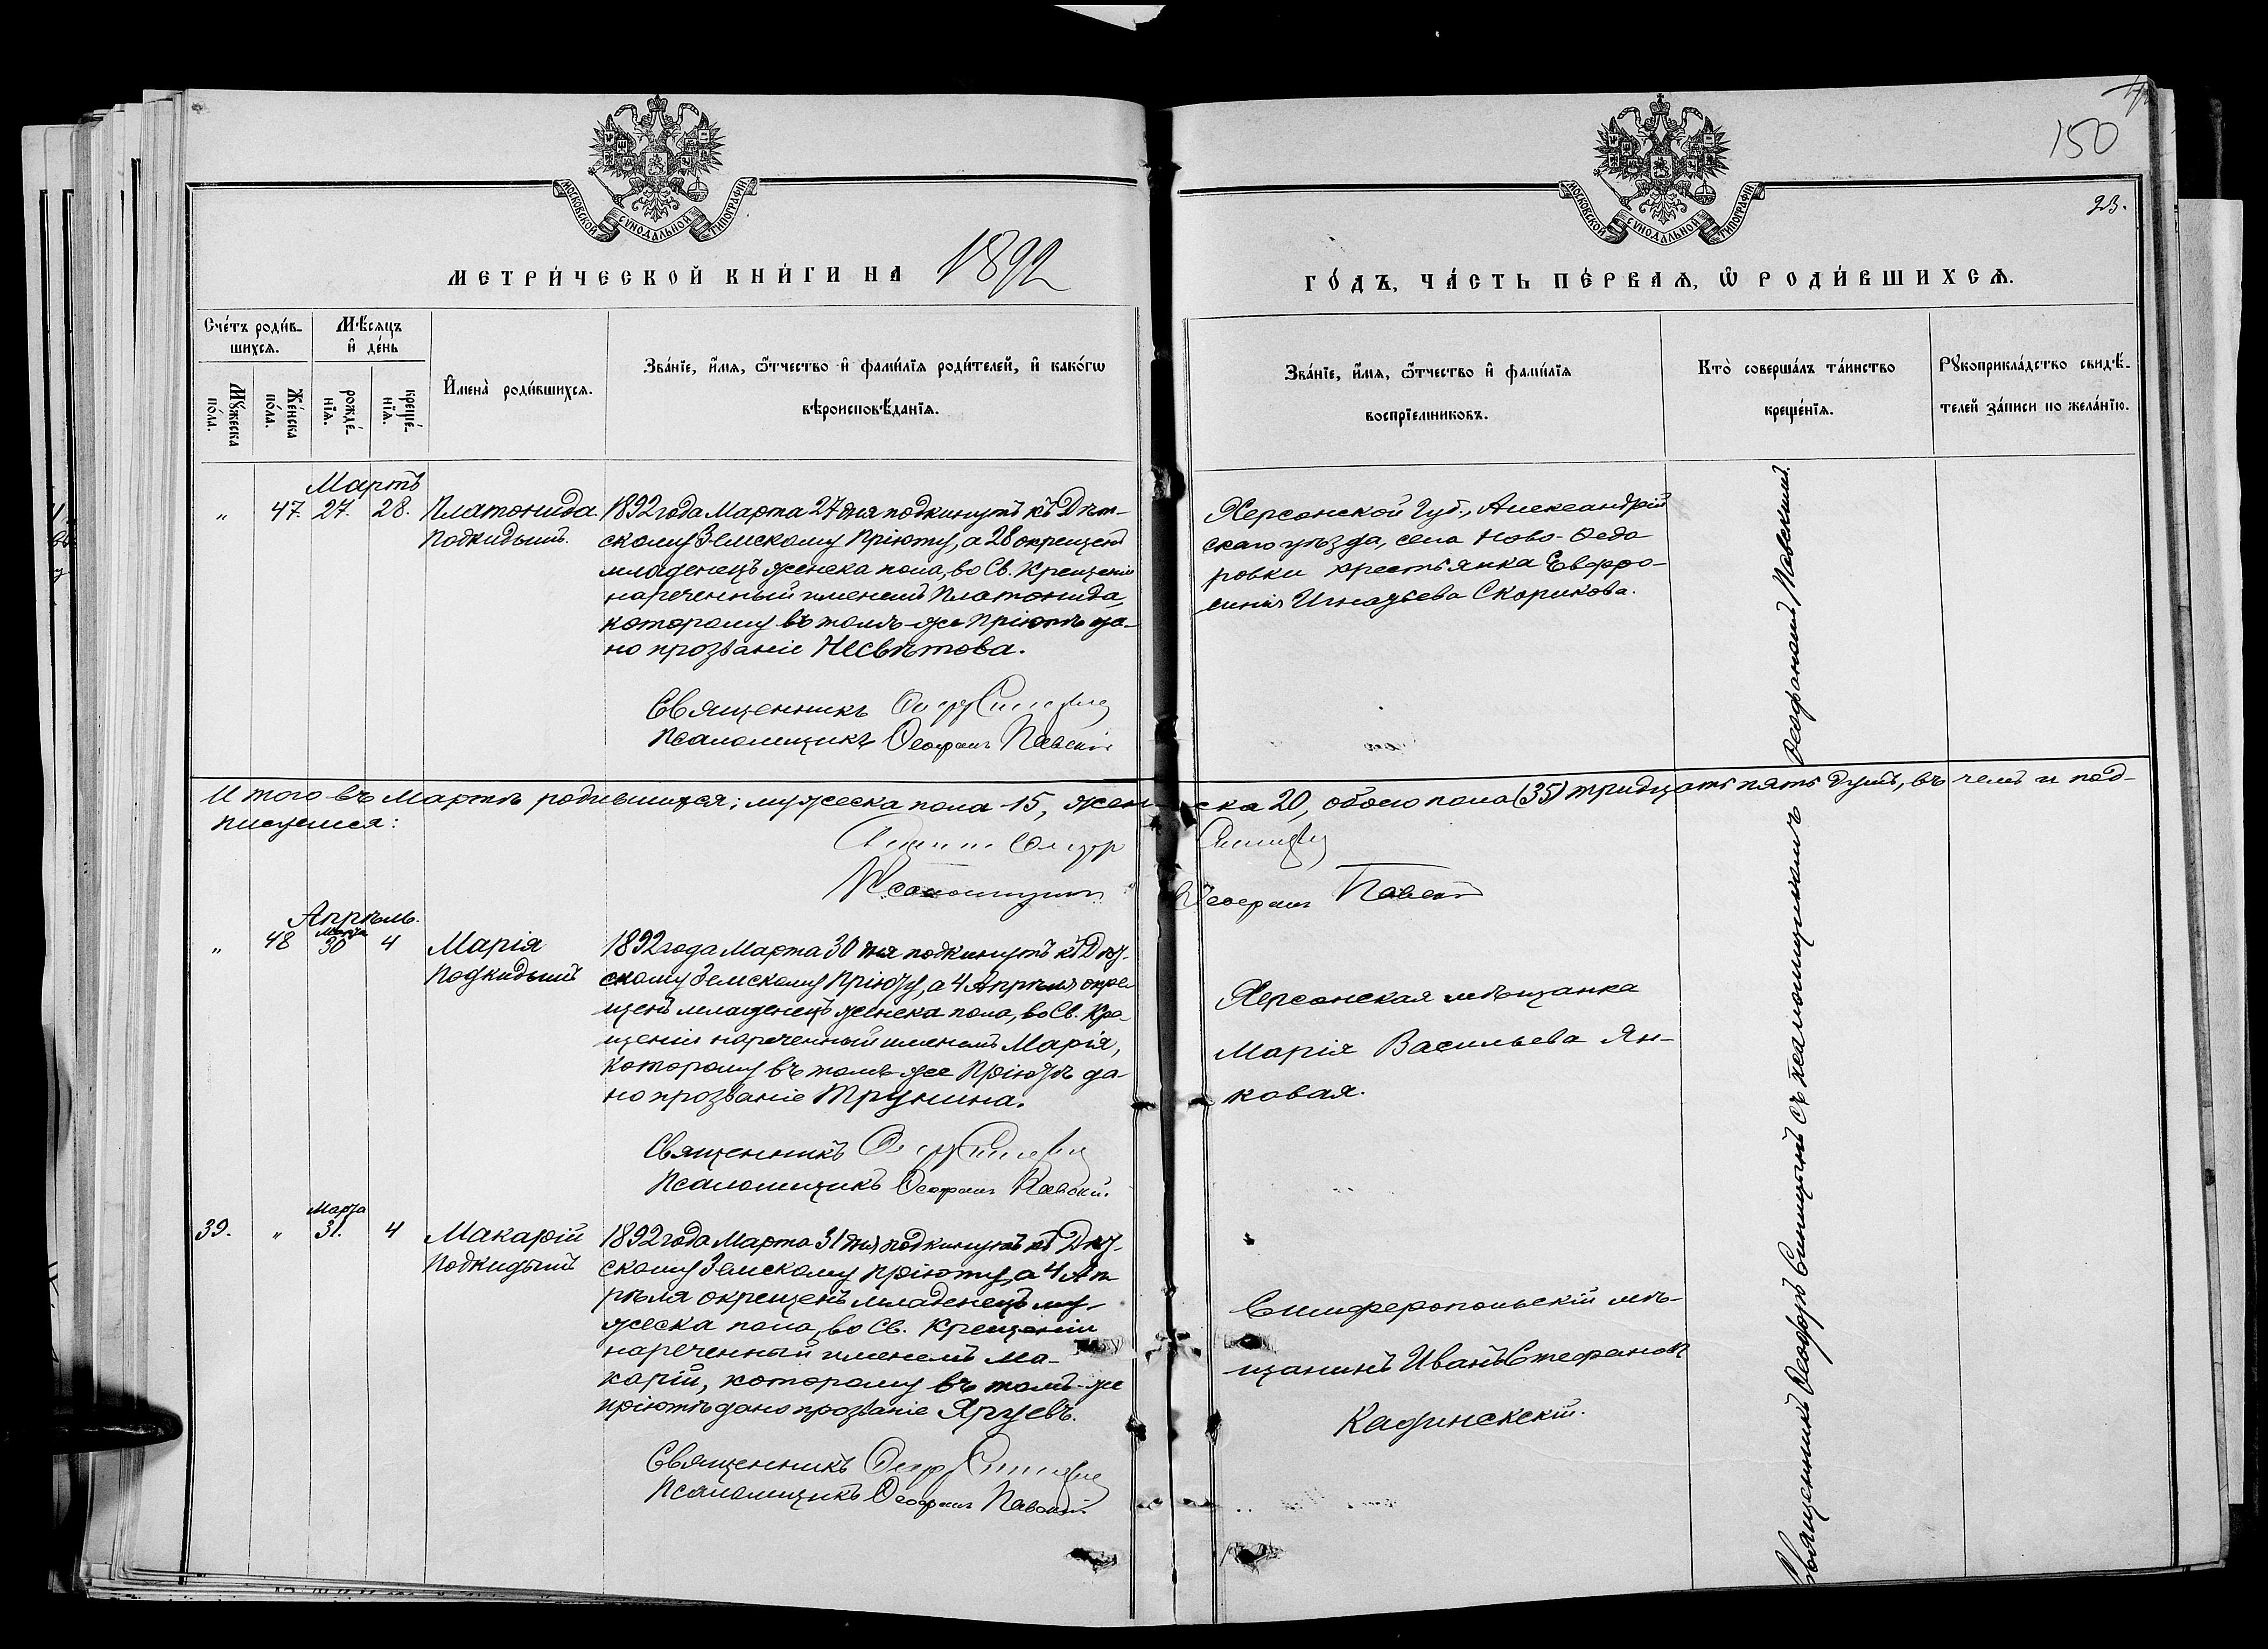 150
23.
МОСКОВСКОЙ СѴНОДАЛЬНОЙ ТИПОГРАФІИ
МОСКОВСКОЙ СѴНОДАЛЬНОЙ ТИПОГРАФІИ
МЕТРИ́ЧЕСКОЙ КНИ́ГИ НА 1892
ГО́ДЪ, ЧА́СТЬ ПЕ́РВАѦ, Ѿ РОДИ́ВШИХСѦ.
Сче́тъ роди́в-
шихсѧ.
Мꙋ́жеска
по́ла.
Же́нска
по́ла.
Мѣ́сяцъ
и҆ де́нь
рожде́-
нїѧ.
креще́-
нїѧ.
И҆мена̀ роди́вшихсѧ.
Зва́нїе, и҆́мѧ, ѻ҆́тчество и҆ фами́лїѧ роди́телей, и҆ како́гѡ
вѣроисповѣ́данїѧ.
Зва́нїе, и҆́мѧ, ѻ҆́тчество и҆ фами́лїѧ
воспрїе́мниковъ.
Кто̀ соверша́лъ та́инство
креще́нїѧ.
Рꙋкоприкла́дство свидѣ́-
телей за́писи по жела́нїю.
Мартъ
„ 47. 27. 28.
Платонида.
Подкидышъ.
1892 года Марта 27 дня подкинутъ къ Дѣт-
скому Земскому Пріюту, а 28 окрещенъ
младенецъ женска пола, во Св. Крещеніи
нареченный именемъ Платонида,
которому въ томъ-же Пріютѣ да-
но прозваніе Несвѣтова.
Священникъ Ѳеодоръ Синицкій
Псаломщикъ Ѳеофанъ Павскій
Херсонской Губ., Александрій
скаго уѣзда, села Ново-Ѳедо
ровки крестьянка Евфро-
синія Игнатьева Скорикова.
Итого въ Мартѣ родившихся: мужеска пола 15, женска 20, обоего пола (35) тридцать пять душъ, въ чемъ и под-
писуемся:
Псаломщикъ Ѳеофанъ Павскій
Апрѣль.
„ 48 Марта 30 4
Марія
Подкидышъ
1892 года Марта 30 дня подкинутъ къ Дѣт-
скому Земскому Пріюту, а 4 Апрѣля окре-
щенъ младенецъ женска пола, во Св. Кре-
щеніи нареченный именемъ Марія,
которому въ томъ же Пріютѣ да-
но прозваніе Трунина.
Священникъ Ѳеодоръ Синицкій
Псаломщикъ Ѳеофанъ Павскій.
Херсонская мѣщанка
Марія Васильева Ян-
ковая.
39. „ Марта 31. 4
Макарій
Подкидышъ
1892 года Марта 31 дня подкинутъ къ Дѣт-
скому Земскому Пріюту, а 4 Ап-
рѣля окрещенъ младенецъ му-
жеска пола, во Св. Крещеніи
нареченный именемъ Ма-
карій, которому въ томъ-же
Пріютѣ дано прозваніе Яруевъ.
Священникъ Ѳеодоръ Синицкій
Псаломщикъ Ѳеофанъ Павскій.
Симферопольскій мѣ-
щанинъ Иванъ Стефанов
Священникъ Ѳеодоръ Синицкій съ псаломщикомъ Ѳеофаномъ Павскимъ.